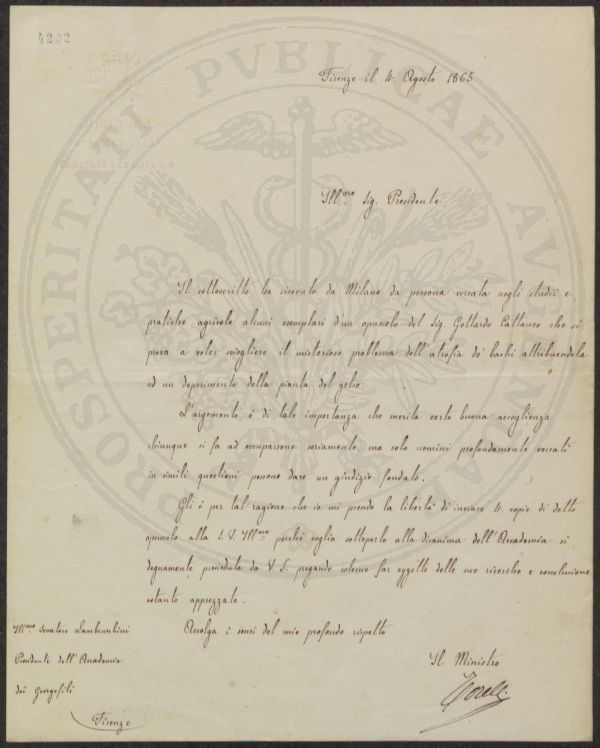 4202
PROSPERITATI PVBLICAE AVGENDAE
Firenze il 4. Agosto 1865
Ill.mo Sig. Presidente
Il sottoscritto ha ricevuto da Milano da persona versata negli studii e
pratiche agricole alcuni esemplari d'un opuscolo del Sig. Gottardo Cattaneo che si
prova a voler sciogliere il misterioso problema dell'atrofia de' bachi attribuendola
ad un deperimento della pianta del gelso.
L'argomento è di tale importanza che merita certo buona accoglienza
chiunque si fa ad occuparsene seriamente, ma solo uomini profondamente versati
in simili questioni possono dare un giudizio fondato.
Gli è per tal ragione che io mi prendo la libertà di inviare 4. copie di detto
opuscolo alla S. V. Ill.ma perchè voglia sottoporlo alla disamina dell'Accademia sì
degnamente preseduta da V. S. pregando volerne far oggetto delle sue ricerche e conclusione
cotanto apprezzate.
Accolga i sensi del mio profondo rispetto
Il Ministro
Torelli
Ill.mo Senatore Lambruschini
Presidente dell'Accademia
dei Georgofili
Firenze